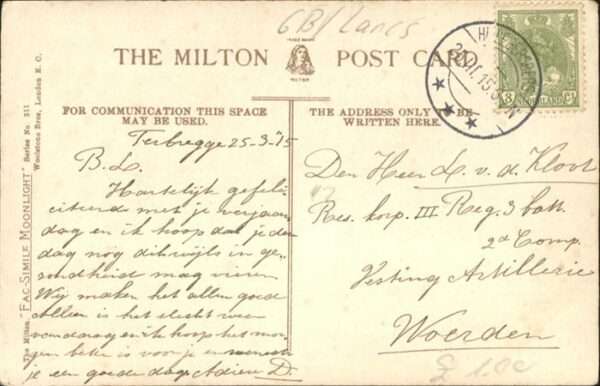 GB/Lancs
THE MILTON POST CARD
MILTON
FOR COMMUNICATION THIS SPACE
MAY BE USED.
THE ADDRESS ONLY TO BE
WRITTEN HERE.
The Milton "FAC-SIMILE MOONLIGHT" Series No. 311
Woolstone Bros., London E. C.
Terbregge 25-3-'15
B. L.
Hartelijk gefeli-
citeerd met je verjaar
dag en ik hoop dat je den
dag nog dikwijls in ge-
zondheid mag vieren
Wij maken het allen goed
Alleen is het slecht weer
vandaag en ik hoop het mor-
gen beter is voor je en wensch
je een goede dag. Adieu D.
Den Heer L. v. d. Kloot
Res. korp. III Reg. 3 batt.
2d Comp.
Vesting Artillerie
Woerden
NEDERLAND
1.00